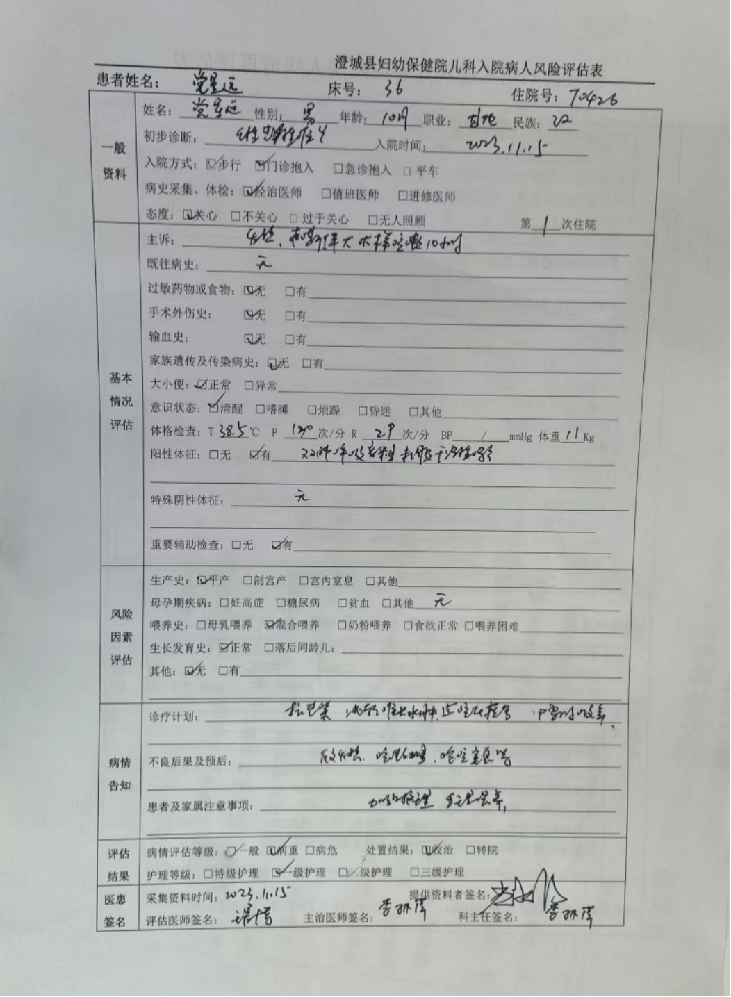 澄城县妇幼保健院儿科入院病人风险评估表
患者姓名： 党星远 床号： 36 住院号：70426
一般资料
姓名： 党星远 性别： 男 年龄： 职业： 民族： 汉
初步诊断： 入院时间： 2023.11.15
入院方式：☑步行 ☑门诊抱入 □急诊抱入 □平车
病史采集、体检：☑经治医师 □值班医师 □进修医师
态度：☑关心 □不关心 □过于关心 □无人照顾 第 1 次住院
基本情况评估
主诉： 发热、
既往病史： 无
过敏药物或食物：☑无 □有
手术外伤史： ☑无 □有
输血史： ☑无 □有
家族遗传及传染病史：☑无 □有
大小便：☑正常 □异常
意识状态：☑清醒 □嗜睡 □烦躁 □昏迷 □其他
体格检查：T 38.5℃ P 130次/分 R 29 次/分 BP / mmHg 体重 11 Kg
阳性体征：□无 ☑有 双肺呼吸音粗
特殊阴性体征： 无
重要辅助检查：□无 ☑有
风险因素评估
生产史：☑平产 □剖宫产 □宫内窒息 □其他
母孕期疾病：□妊高症 □糖尿病 □贫血 □其他 无
喂养史：□母乳喂养 ☑混合喂养 □奶粉喂养 □食欲正常 □喂养困难
生长发育史：☑正常 □落后同龄儿：
其他：☑无 □有
病情告知
诊疗计划：
不良后果及预后：
患者及家属注意事项： 加强护理
评估结果
病情评估等级：☑一般 ☑病重 □病危 处置结果：☑收治 □转院
护理等级：□特级护理 ☑一级护理 ☑二级护理 □三级护理
医患签名
采集资料时间：2023.11.15 提供资料者签名：
评估医师签名： 主治医师签名： 科主任签名：